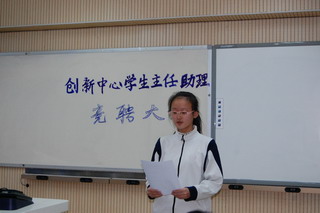 创新中心学生主任助理
竞聘大